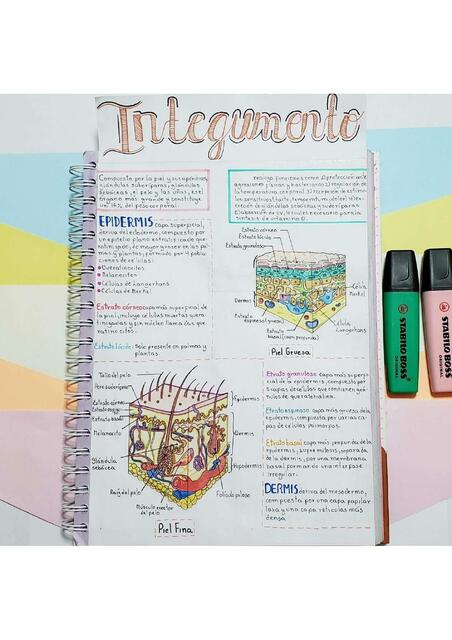 Integumento
Compuesto por la piel y sus apéndices,
glándulas sudoríparas, glándulas
sebáceas, el pelo y las uñas, es el
órgano más grande y constituye
un 16% del peso corporal.
realiza funciones como: 1) protección de
agresiones físicas y bacterianas 2) regulación de
la temperatura corporal 3) recepción de estímu
los sensitivos (tacto, temperatura, dolor) 4) Sec
creción de glándulas sebáceas y sudoríparas
necesario para la
síntesis de vitamina D.
EPIDERMIS capa superficial,
deriva del ectodermo, compuesto por
un epitelio plano estratificado que
ratinizado, de mayor grosor en las pal
mas y plantas, formado por 4 pobla
ciones de células:
• Queratinocitos
• Melanocitos
• Células de Langerhans
• Células de Merkel
Estrato córneo capa más superficial de
la piel, incluye células muertas quera
tinizadas y sin núcleo llamadas que
ratinocitos.
Estrato lúcido: Solo presente en palmas y
plantas.
Estrato córneo
Estrato lúcido
Estrato granuloso
Célula
Merkel
Dermis
Estrato espinoso
Estrato
basal
Célula
Langerhans
Piel Gruesa
Tallo del pelo
Poro sudoríparo
Estrato córneo
Estrato
Estrato basal
Melanocito
Glándula
sebácea
Raíz del pelo
Músculo erector
del pelo
Epidermis
Dermis
Hipodermis
Folículo piloso
Piel Fina
Etrato granuloso capa más super
ficial de la epidermis, compuesto por
capas de células que contienen grá
nulos de queratohialina.
Etrato espinoso capa más gruesa de la
epidermis, compuesta por varias ca
pas de células
Etrato basal capa más profunda de la
epidermis, separada
de la dermis, por una membrana
basal formando una interfase
irregular.
DERMIS deriva del mesodermo,
compuesta por una capa papilar
laxa y una capa reticular más
densa
STABILO BOSS
STABILO BOSS